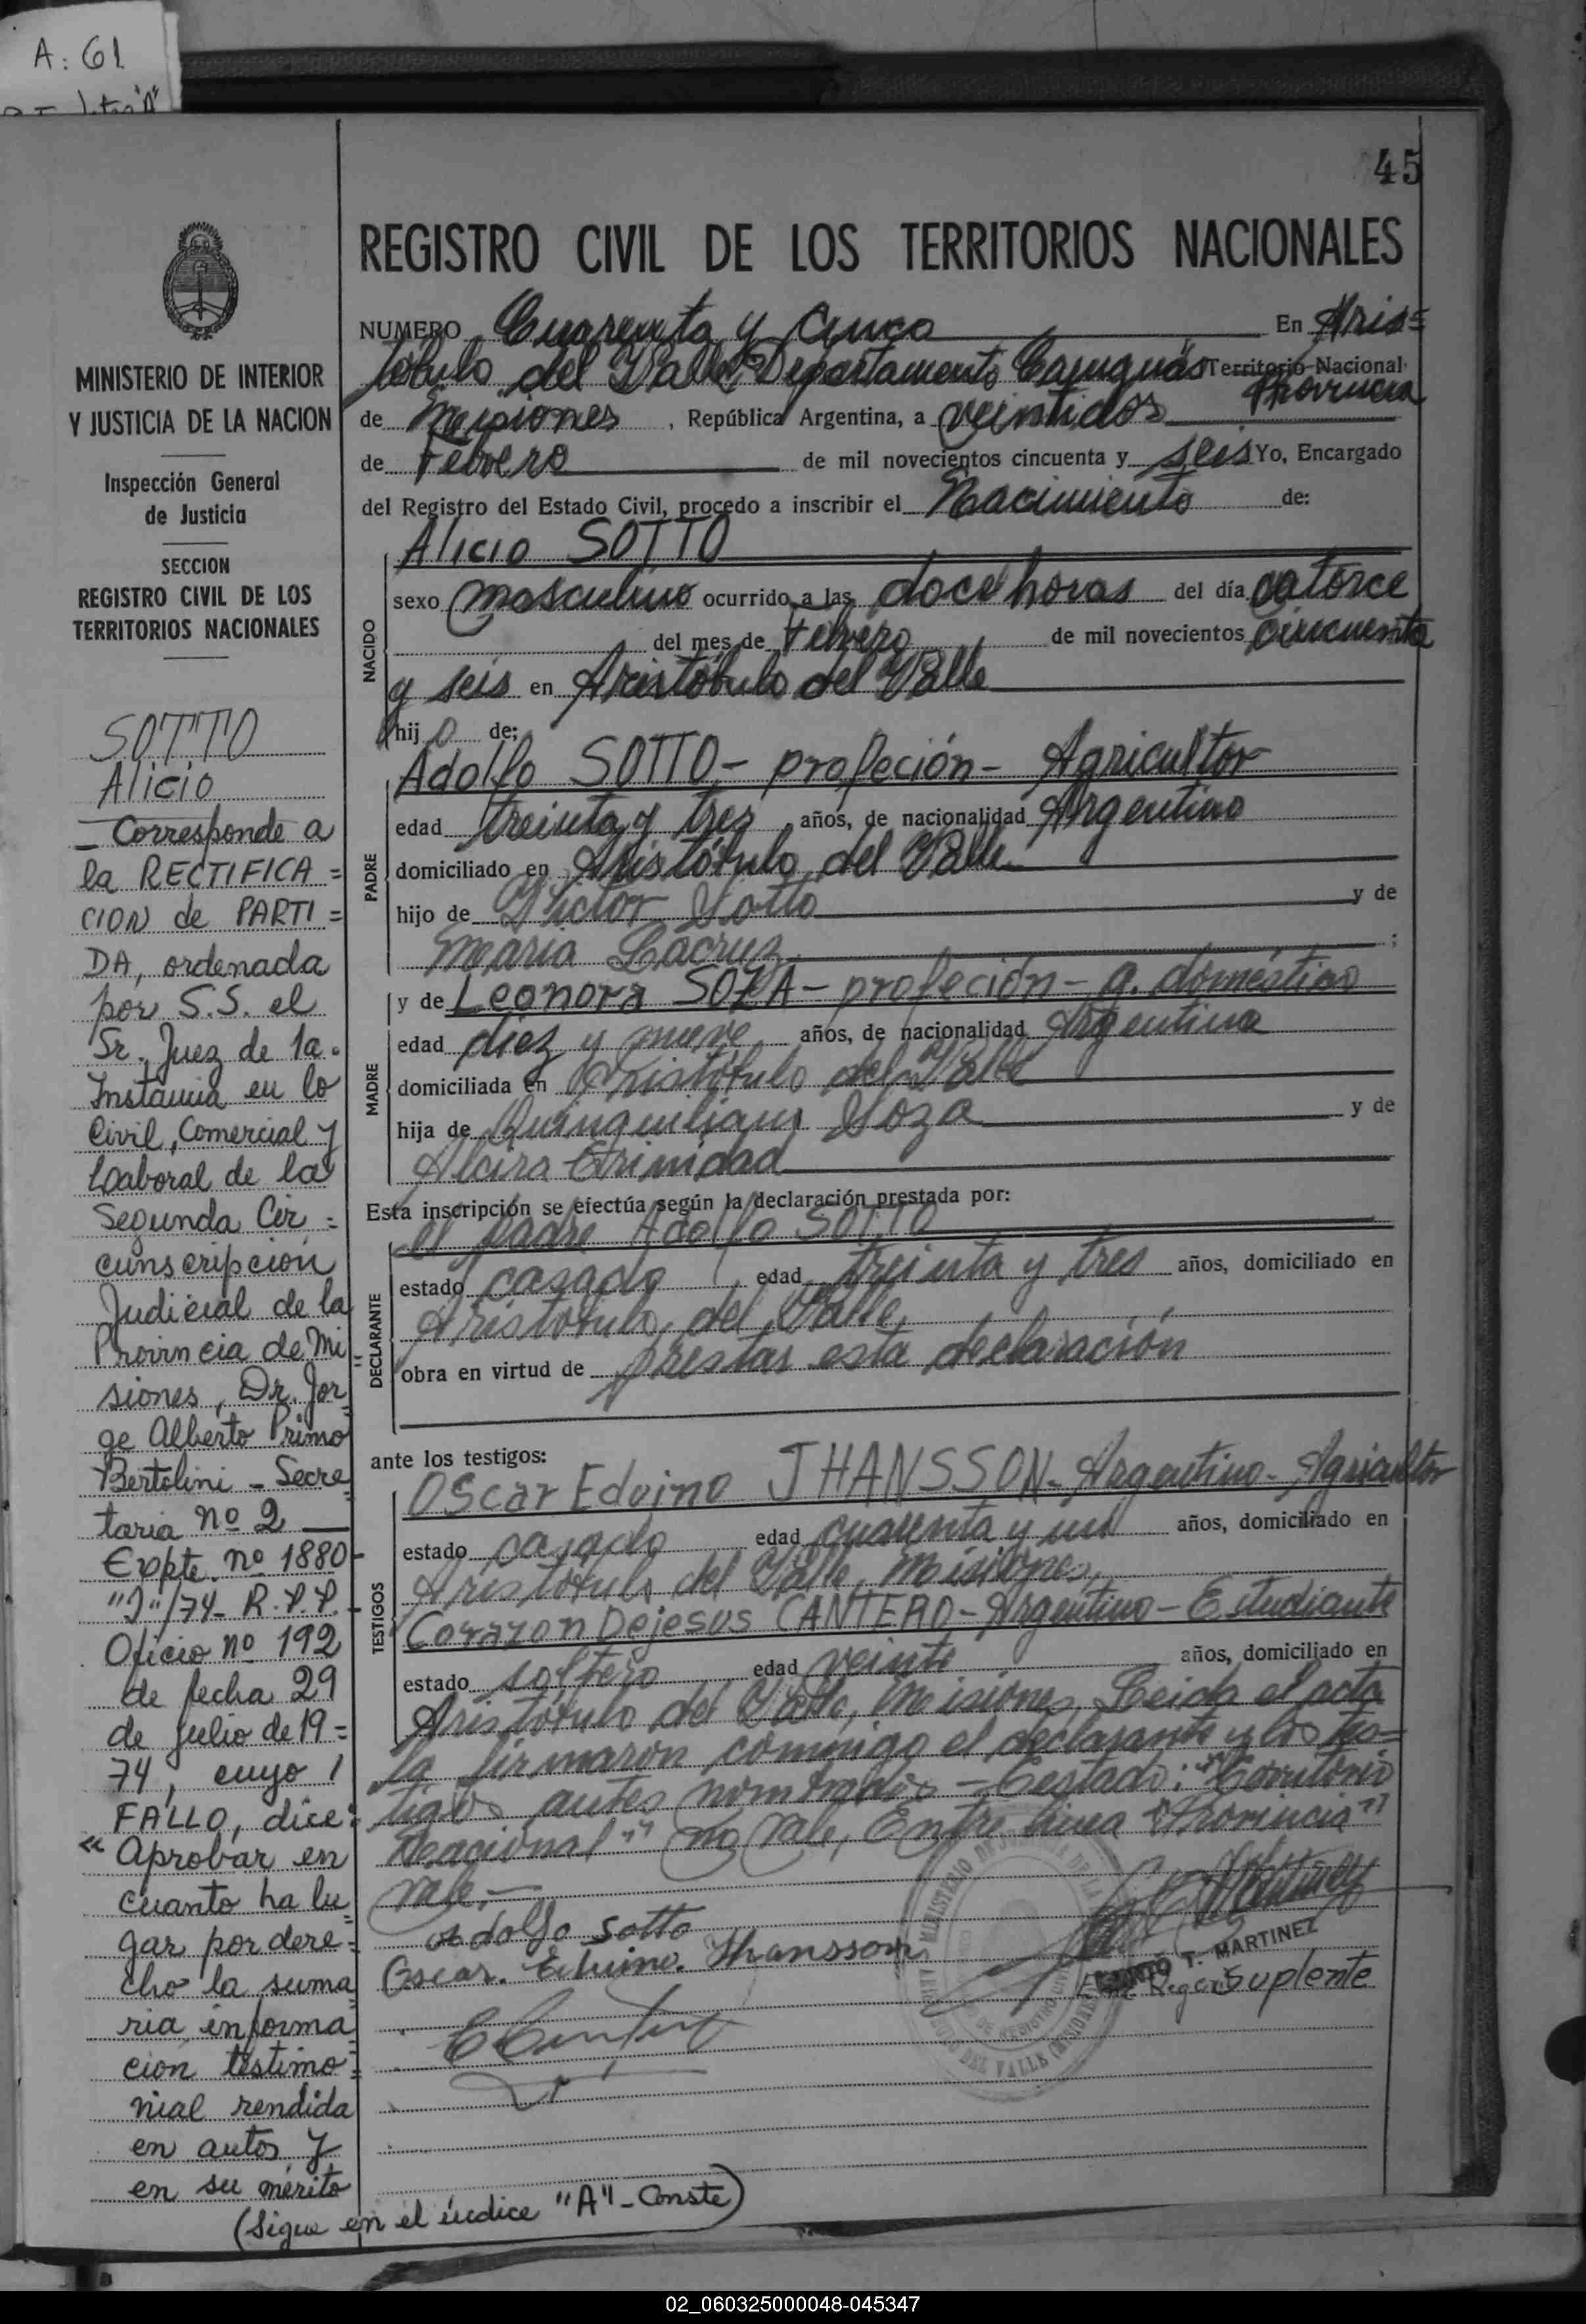 A: 61
45
REGISTRO CIVIL DE LOS TERRITORIOS NACIONALES
NUMERO Cuarenta y Cinco En Aris=
tóbulo del Valle, Departamento Cainguás Territorio Nacional
Provincia
de Misiones, República Argentina, a veintidos
de Febrero de mil novecientos cincuenta y seis Yo, Encargado
del Registro del Estado Civil, procedo a inscribir el Nacimiento de:
NACIDO
Alicio SOTTO
sexo masculino ocurrido a las doce horas del día catorce
del mes de Febrero de mil novecientos cincuenta
y seis en Aristóbulo del Valle
hijo de:
PADRE
Adolfo SOTTO - profeción - Agricultor
edad treinta y tres años, de nacionalidad Argentino
domiciliado en Aristóbulo del Valle
hijo de Victor Sotto y de
Maria Lacruz ;
MADRE
y de Leonora SOZA - profeción - q. doméstico
edad diez y nueve años, de nacionalidad Argentina
domiciliada en Aristóbulo del Valle
hija de Soza y de
Alcira Trinidad
Esta inscripción se efectúa según la declaración prestada por:
DECLARANTE
el padre Adolfo SOTTO
estado casado edad treinta y tres años, domiciliado en
Aristóbulo del Valle,
obra en virtud de prestar esta declaración
ante los testigos:
TESTIGOS
Oscar Eduino JHANSSON - Argentino - Agricultor
estado casado edad cuarenta y un años, domiciliado en
Aristóbulo del Valle, Misiones,
Corazon Dejesus CANTERO - Argentino - Estudiante
estado soltero edad veinte años, domiciliado en
Aristóbulo del Valle, Misiones, Leida el acta
la firmaron conmigo el declarante y los tes=
tigos antes nombrados - Testado: "Territorio
Nacional" no vale, Entre linea "Provincia"
vale.-
Adolfo Sotto
Oscar. Eduino. Jhansson
T. MARTINEZ
Suplente
MINISTERIO DE INTERIOR
Y JUSTICIA DE LA NACION
Inspección General
de Justicia
SECCION
REGISTRO CIVIL DE LOS
TERRITORIOS NACIONALES
SOTTO
Alicio
- Corresponde a
la RECTIFICA=
CION de PARTI=
DA, ordenada
por S.S. el
Sr. Juez de 1a.
Instancia en lo
Civil, Comercial y
Laboral de la
Segunda Cir=
cunscripción
Judicial de la
Provincia de Mi=
siones, Dr. Jor=
ge Alberto Primo
Bertolini - Secre=
taria nº 2
Expte. nº 1880-
/74- R.P.P.-
Oficio nº 192
de fecha 29
de julio de 19=
74, cuyo
FALLO, dice:
"Aprobar en
cuanto ha lu=
gar por dere=
cho la suma
ria informa=
cion testimo=
nial rendida
en autos y
en su mérito
(Sigue en el índice "A" - Conste)
02_060325000048-045347